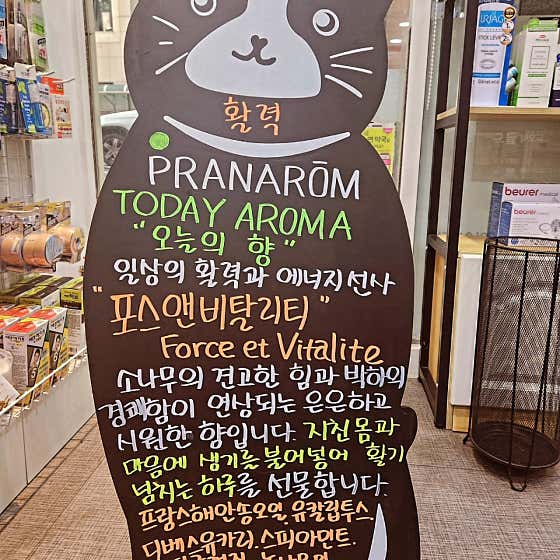 활력
PRANARŌM
TODAY AROMA
"오늘의 향"
일상의 활력과 에너지선사
"포스앤비탈리티"
Force et Vitalite
소나무의 견고한 힘과 박하의
경쾌함이 연상되는 은은하고
시원한 향입니다. 지친 몸과
마음에 생기를 불어넣어 활기
넘치는 하루를 선물합니다.
프랑스해안송오일, 유칼립투스,
디베스유카리, 스피아민트,
beurer medical
beurer